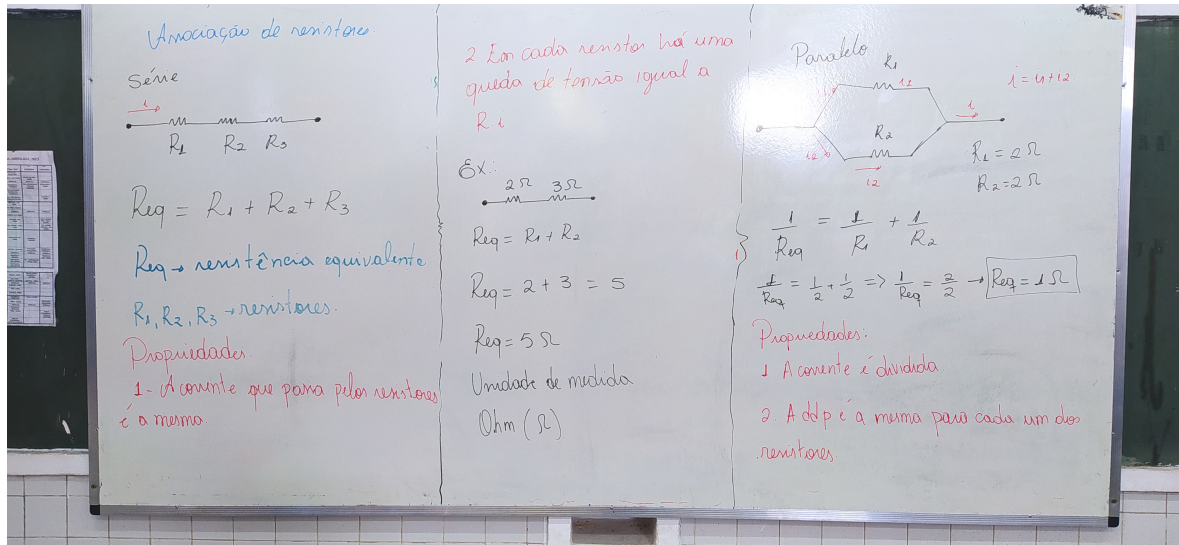 Associação de resistores.
Série
i
R1 R2 R3
Req = R1 + R2 + R3
Req → resistência equivalente
R1, R2, R3 → resistores.
Propriedades.
1- A corrente que passa pelos resistores
é a mesma.
2 Em cada resistor há uma
queda de tensão igual a
R i
Ex.:
2Ω 3Ω
Req = R1 + R2
Req = 2 + 3 = 5
Req = 5 Ω
Unidade de medida
Ohm (Ω)
Paralelo
R1
i1 i1
i = i1 + i2
i
R2
i2
i2
R1 = 2 Ω
R2 = 2 Ω
1/Req = 1/R1 + 1/R2
1/Req = 1/2 + 1/2 => 1/Req = 2/2 → Req = 1 Ω
Propriedades:
1 A corrente é dividida
2. A ddp é a mesma para cada um dos
resistores